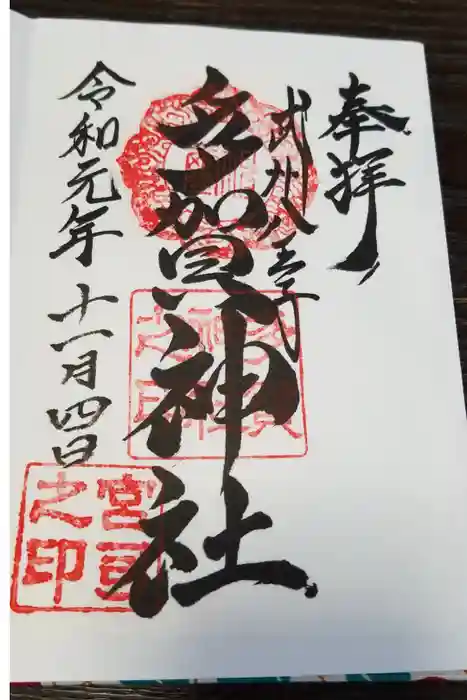 奉拝
武州八王子
多賀神社
多賀神社之印
令和元年十一月四日
宮司之印